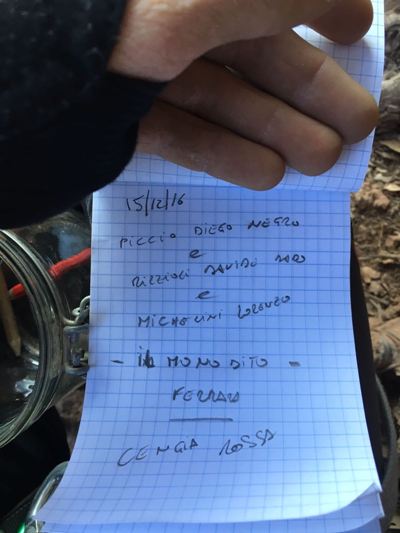 15/12/16
PICCIO DIEGO NEGRO
e
RIZZIOLI DAVIDE
e
MICHELINI LORENZO
- IL MONODITO -
FERRARI
CENGIA ROSSA